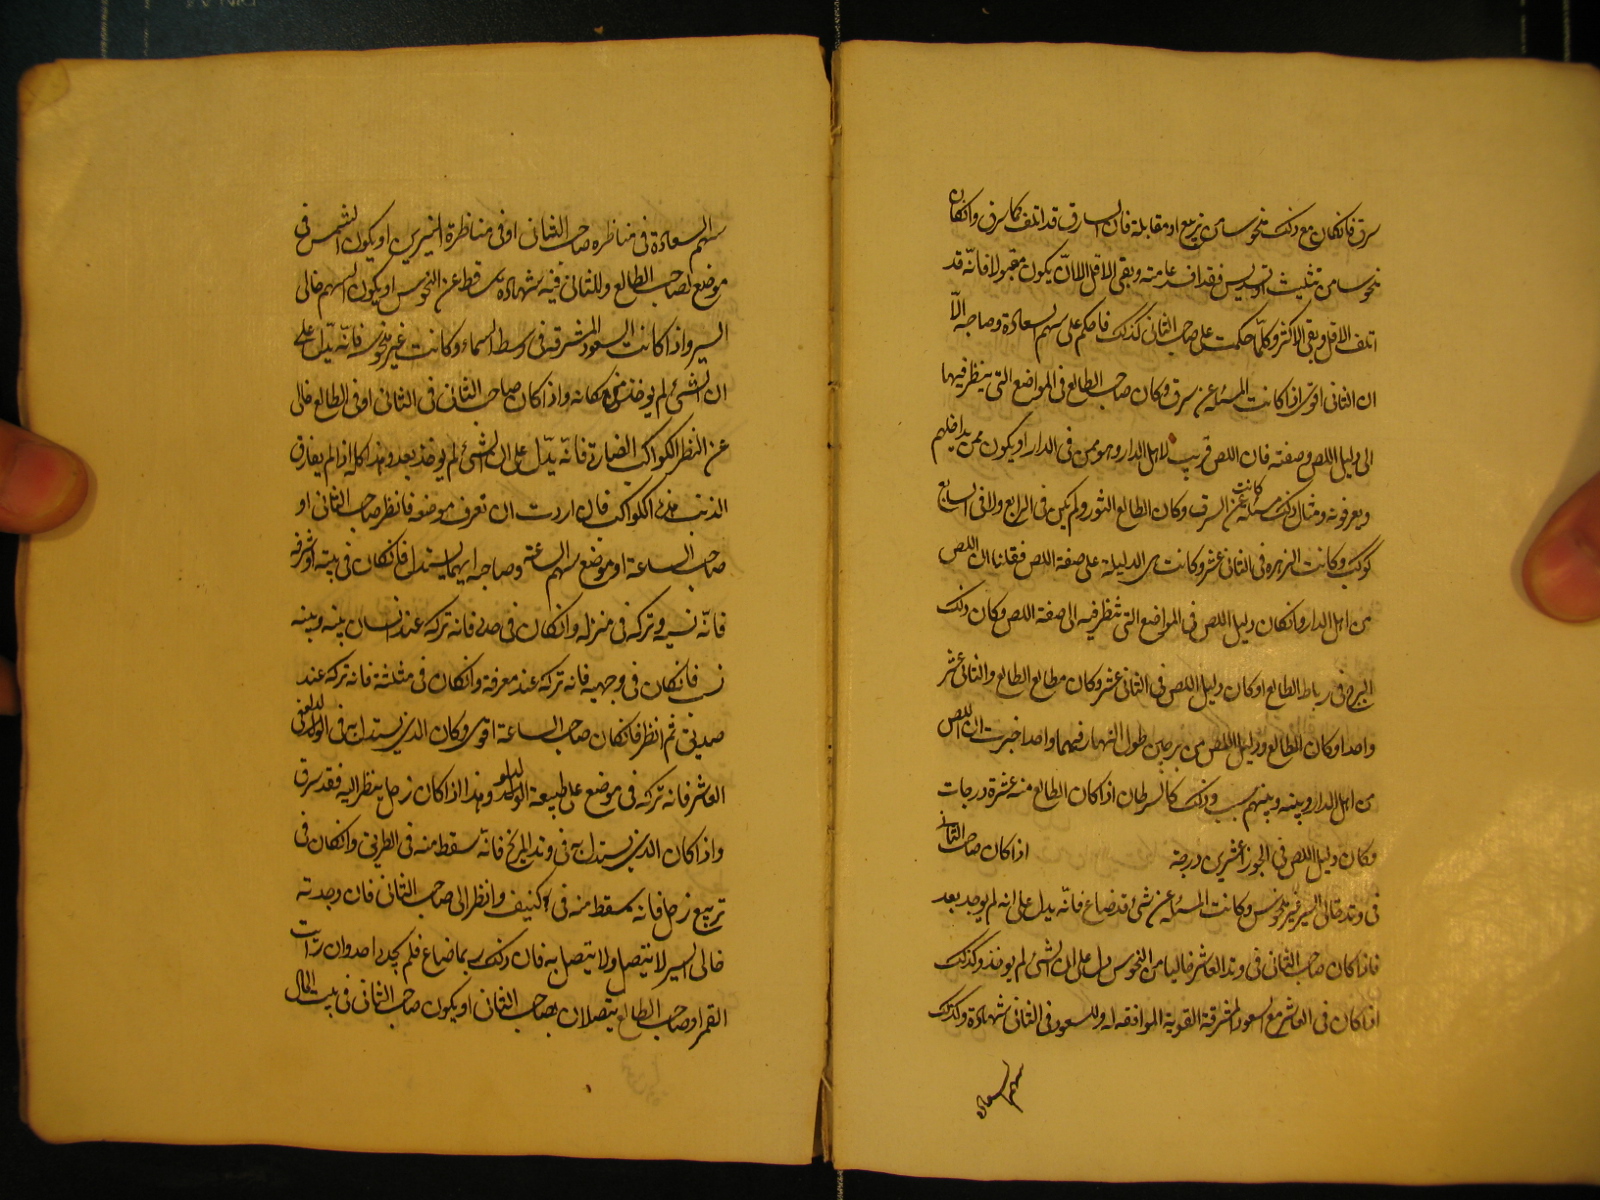 سرق فانكان مع ذلك نحوسا من تربيع او مقابلة فان السارق قد اتلف ما سرق وانكان
نحوسا من تثليث او تسديس فقد افسد عامته وبقى الاقل الا ان يكون مقبولا فانّه قد
اتلف الاقل وبقى الاكثر وكلّما حكمت على صاحب الثانى كذلك فاحكم على سهم السعادة وصاحبه الّا
ان الثانى اقوى اذا كانت المسئلة عن سرق وكان صاحب الطالع فى المواضع التى ينظر فيها
الى دليل اللص وصفته فان اللص قريب لاهل الدار وهو من فى الدار او يكون ممن يداخلهم
ويعرفونه ومثال ذلك مسئلة كانت عن السرق وكان الطالع الثور ولم يكن فى الرابع ولا فى السابع
كوكب وكانت الزهرة فى الثانى عشر وكانت هى الدليلة على صفة اللص فقلنا ان اللص
من اهل الدار وانكان دليل اللص فى المواضع التى تنظر فيه الى صفة اللص وكان ذلك
البرج فى رباط الطالع او كان دليل اللص فى الثانى عشر وكان مطالع الطالع والثانى عشر
واحدا وكان الطالع ودليل اللص من برجين طول النهار فيهما واحد اخبرت ان اللص
من اهل الدار وبينه وبينهم سبب وذلك كالسرطان اذا كان الطالع منه عشرة درجات
وكان دليل اللص فى الجوزا عشرين درجة اذا كان صاحب الثانى
فى وتد خالى السير غير نحوس وكانت المسئلة عن شى قد ضاع فانّه يدل على انه لم يوجد بعد
فاذا كان صاحب الثانى فى وتد العاشر خاليا من النحوس دل على ان الشئ لم يوخذ وكذلك
اذا كان فى العاشر مع السعود المشرقة القوية الموافقه له وللسعود فى الثانى شهادة وكذلك
سهم السعادة
سهم السعادة فى مناظره صاحب الثانى او فى مناظرة النيرين او يكون الشمس فى
موضع لصاحب الطالع وللثانى فيه شهادة ساقط عن النحوس او يكون السهم خالى
السير واذا كانت السعود المشرقه فى وسط السماء وكانت غير نحوس فانّه يدل على
ان الشئ لم يوخذ من مكانه واذا كان صاحب الثانى فى الثانى او فى الطالع خالى
عن النظر الكواكب الضارة فانّه يدّل على ان الشئ لم يوخذ بعد وهذا كله اذا لم يفارق
الذنب هذه الكواكب فان اردت ان تعرف موضعه فانظر صاحب الثانى او
صاحب الساعة او موضع سهم السعادة وصاحبه ايهما يستدل فانكان فى بيته او شرفه
فانّه نسى وتركه فى منزله وانكان فى حده فانه تركه عند انسان بينه وبينه
نسب فانكان فى وجهه فانه تركه عند معرفة وانكان فى مثلثة فانه تركه عند
صديق ثم انظر فانكان صاحب الساعة اقوى وكان الذى يستدل به فى الدلو فى
العاشر فانه تركه فى موضع على طبيعة الدلو وهذا اذا كان زحل ينظر اليه فقد سرق
واذا كان الذى يستدل به فى وتد المريخ فانّه سقط منه فى الطريق وانكان فى
تربيع زحل فانه سقط منه فى كنيف وانظر الى صاحب الثانى فان وجدته
خالى السير لا يتصل ولا يتصل به فان ذلك بما ضاع فلم يجده احد وان رايت
القمر او صاحب الطالع يتصلان بصاحب الثانى او يكون صاحب الثانى فى بيت المال